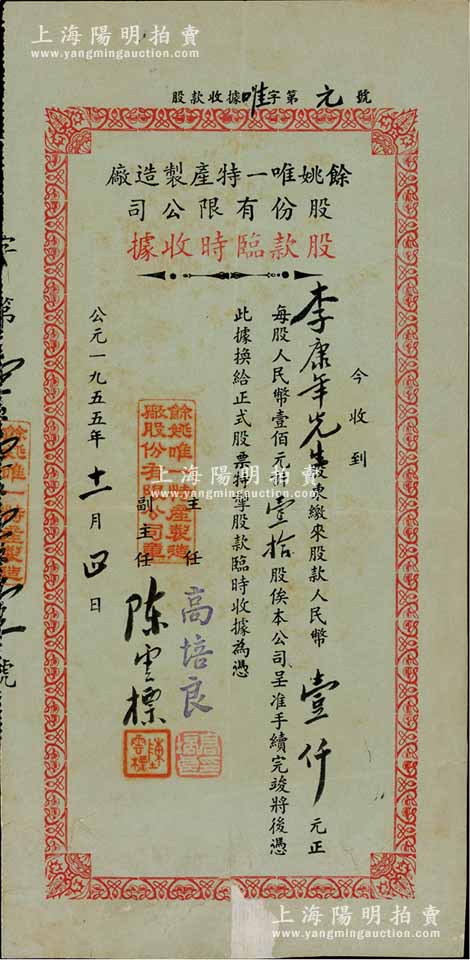 上海陽明拍賣
www.yangmingauction.com
股款收據唯字第元號
餘姚唯一特產製造廠
股份有限公司
股款臨時收據
今收到
李康年先生股東繳來股款人民幣壹仟元正
每股人民幣壹佰元計壹拾股俟本公司呈准手續完竣將後憑
此據換給正式股票特掣股款臨時收據為憑
主任 高培良
副主任 陈雲標
公元一九五五年十一月四日
餘姚唯一特產製造廠股份有限公司章
陳雲標
字第
號
餘姚唯一特產製造
上海陽明拍賣
www.yangmingauction.com
上海陽明拍賣
www.yangmingauction.com